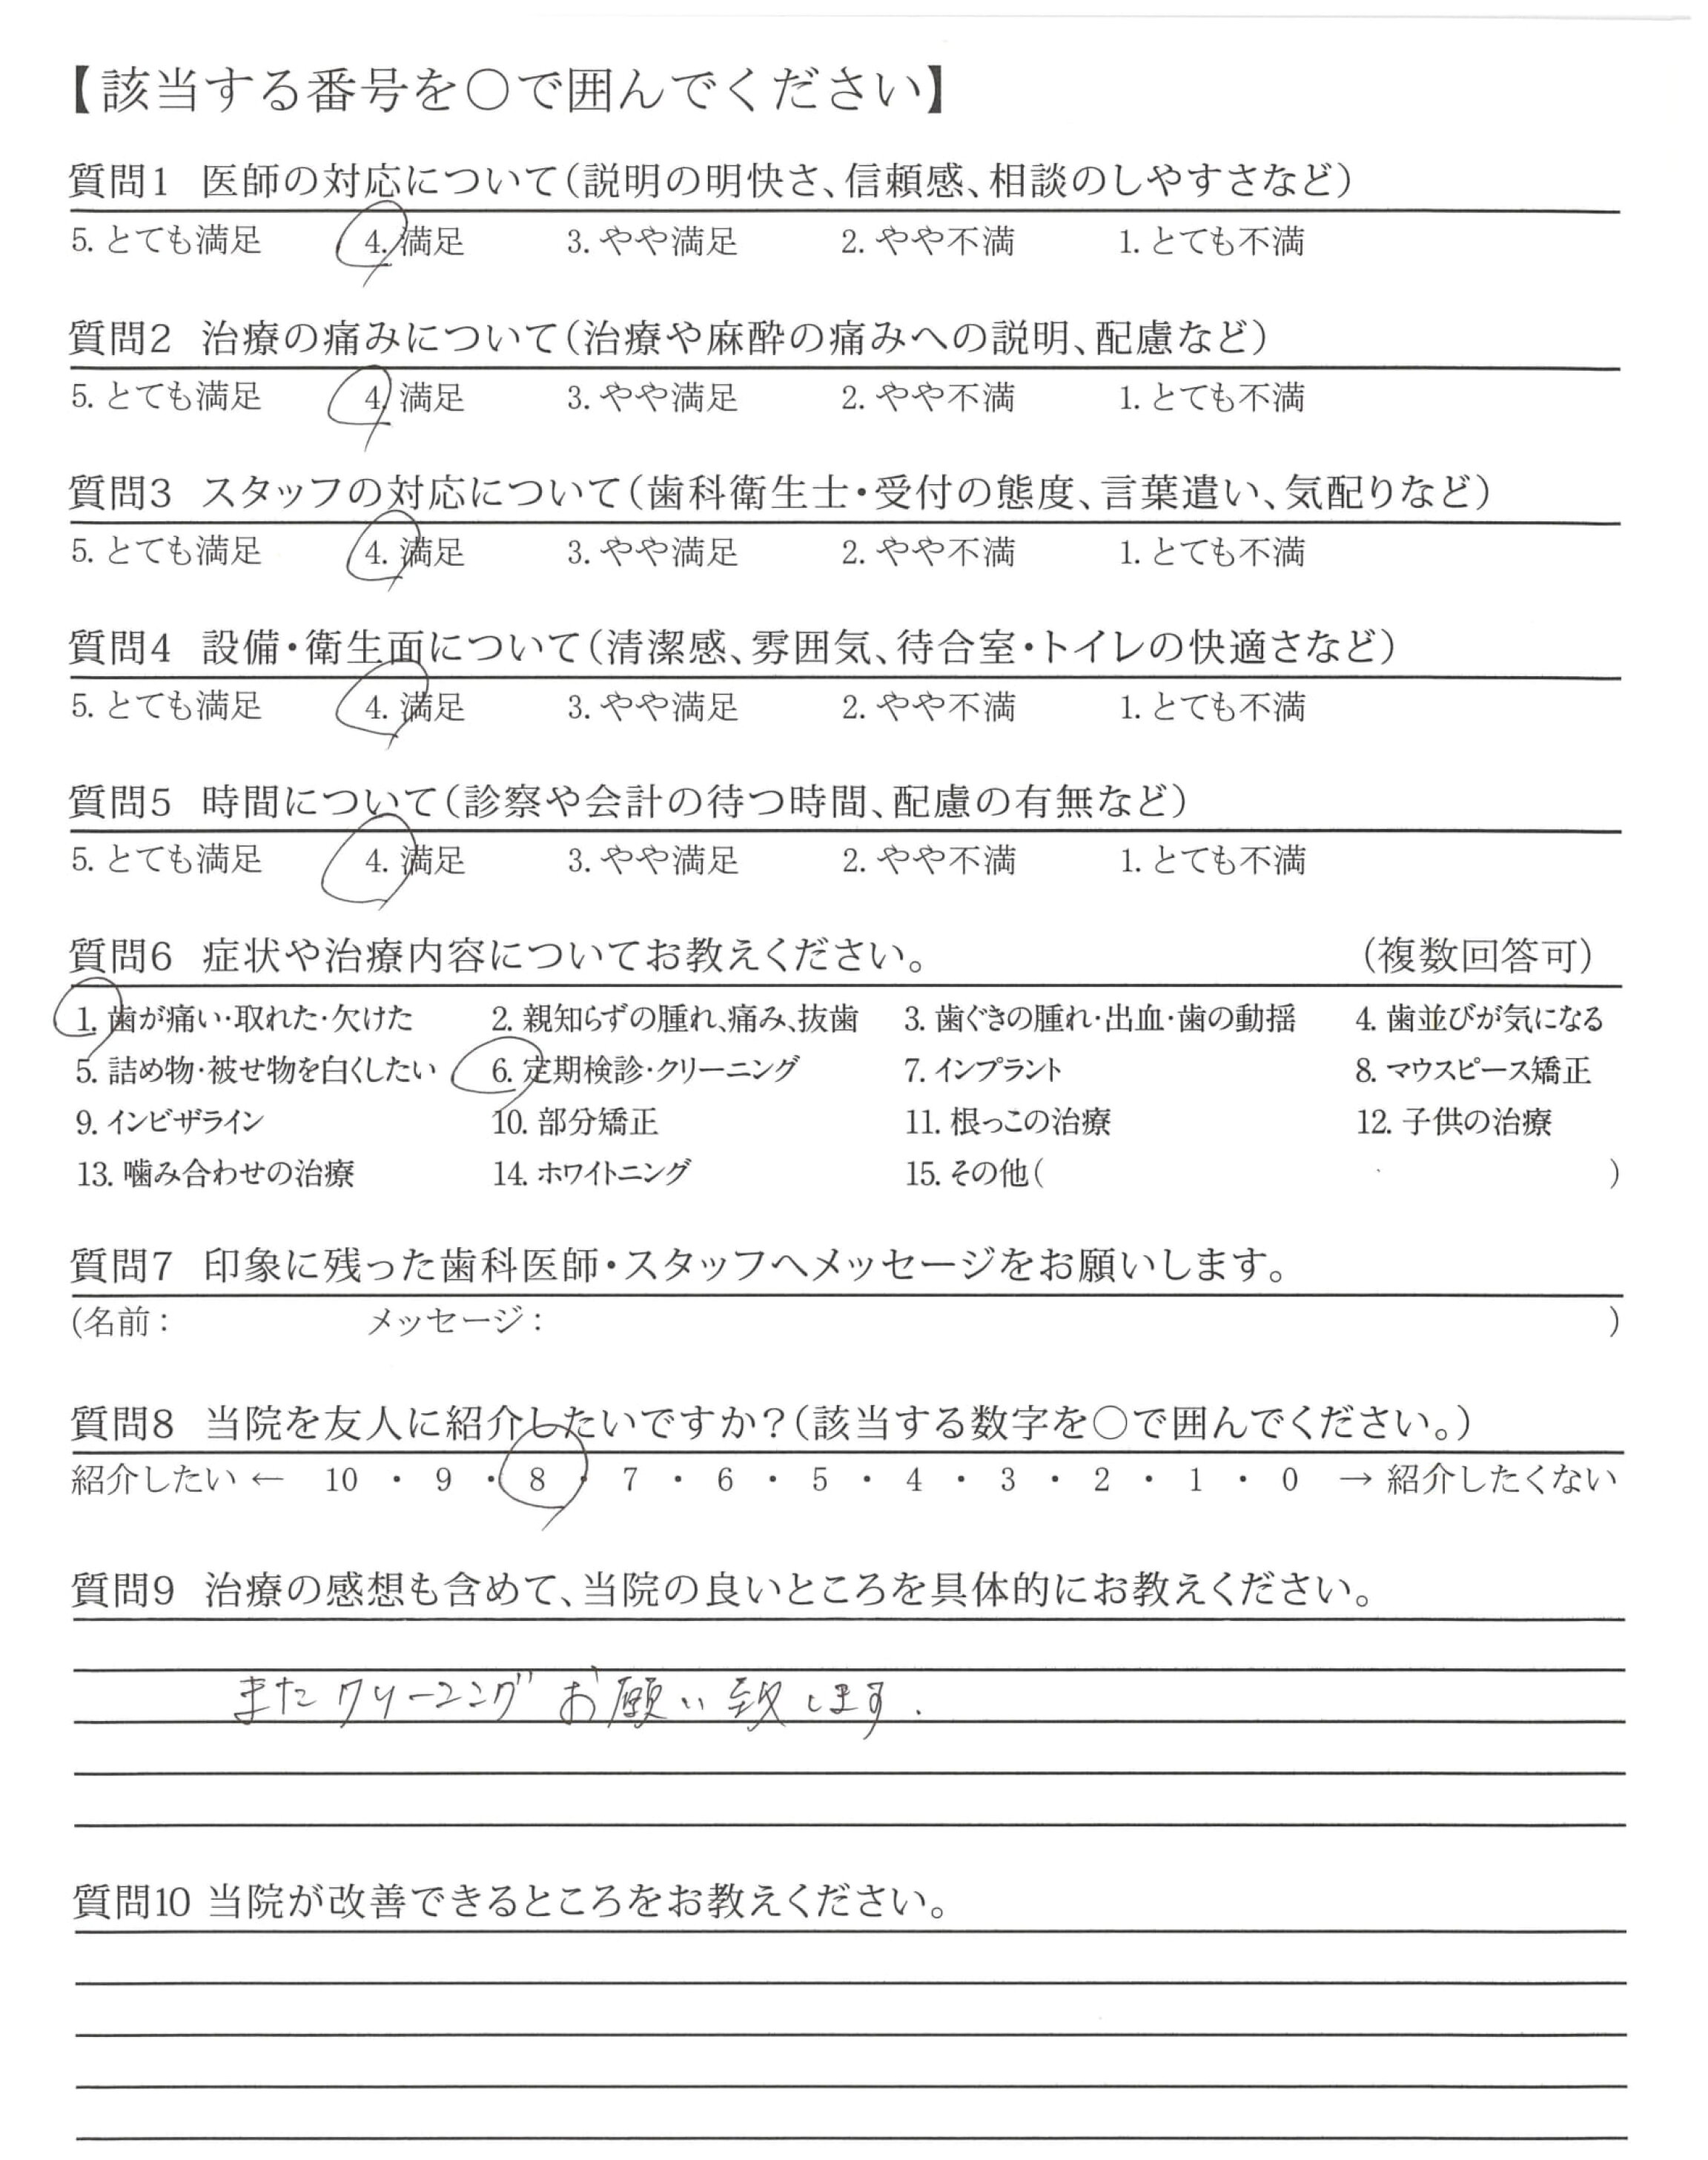 【該当する番号を〇で囲んでください】
質問1 医師の対応について(説明の明快さ、信頼感、相談のしやすさなど)
5. とても満足 4. 満足 3. やや満足 2. やや不満 1. とても不満
質問2 治療の痛みについて(治療や麻酔の痛みへの説明、配慮など)
5. とても満足 4. 満足 3. やや満足 2. やや不満 1. とても不満
質問3 スタッフの対応について(歯科衛生士・受付の態度、言葉遣い、気配りなど)
5. とても満足 4. 満足 3. やや満足 2. やや不満 1. とても不満
質問4 設備・衛生面について(清潔感、雰囲気、待合室・トイレの快適さなど)
5. とても満足 4. 満足 3. やや満足 2. やや不満 1. とても不満
質問5 時間について(診察や会計の待つ時間、配慮の有無など)
5. とても満足 4. 満足 3. やや満足 2. やや不満 1. とても不満
質問6 症状や治療内容についてお教えください。 (複数回答可)
1. 歯が痛い・取れた・欠けた 2. 親知らずの腫れ、痛み、抜歯 3. 歯ぐきの腫れ・出血・歯の動揺 4. 歯並びが気になる
5. 詰め物・被せ物を白くしたい 6. 定期検診・クリーニング 7. インプラント 8. マウスピース矯正
9. インビザライン 10. 部分矯正 11. 根っこの治療 12. 子供の治療
13. 噛み合わせの治療 14. ホワイトニング 15. その他( )
質問7 印象に残った歯科医師・スタッフへメッセージをお願いします。
(名前: メッセージ: )
質問8 当院を友人に紹介したいですか?(該当する数字を〇で囲んでください。)
紹介したい ← 10 ・ 9 ・ 8 ・ 7 ・ 6 ・ 5 ・ 4 ・ 3 ・ 2 ・ 1 ・ 0 → 紹介したくない
質問9 治療の感想も含めて、当院の良いところを具体的にお教えください。
またクリーニングお願い致します.
質問10 当院が改善できるところをお教えください。